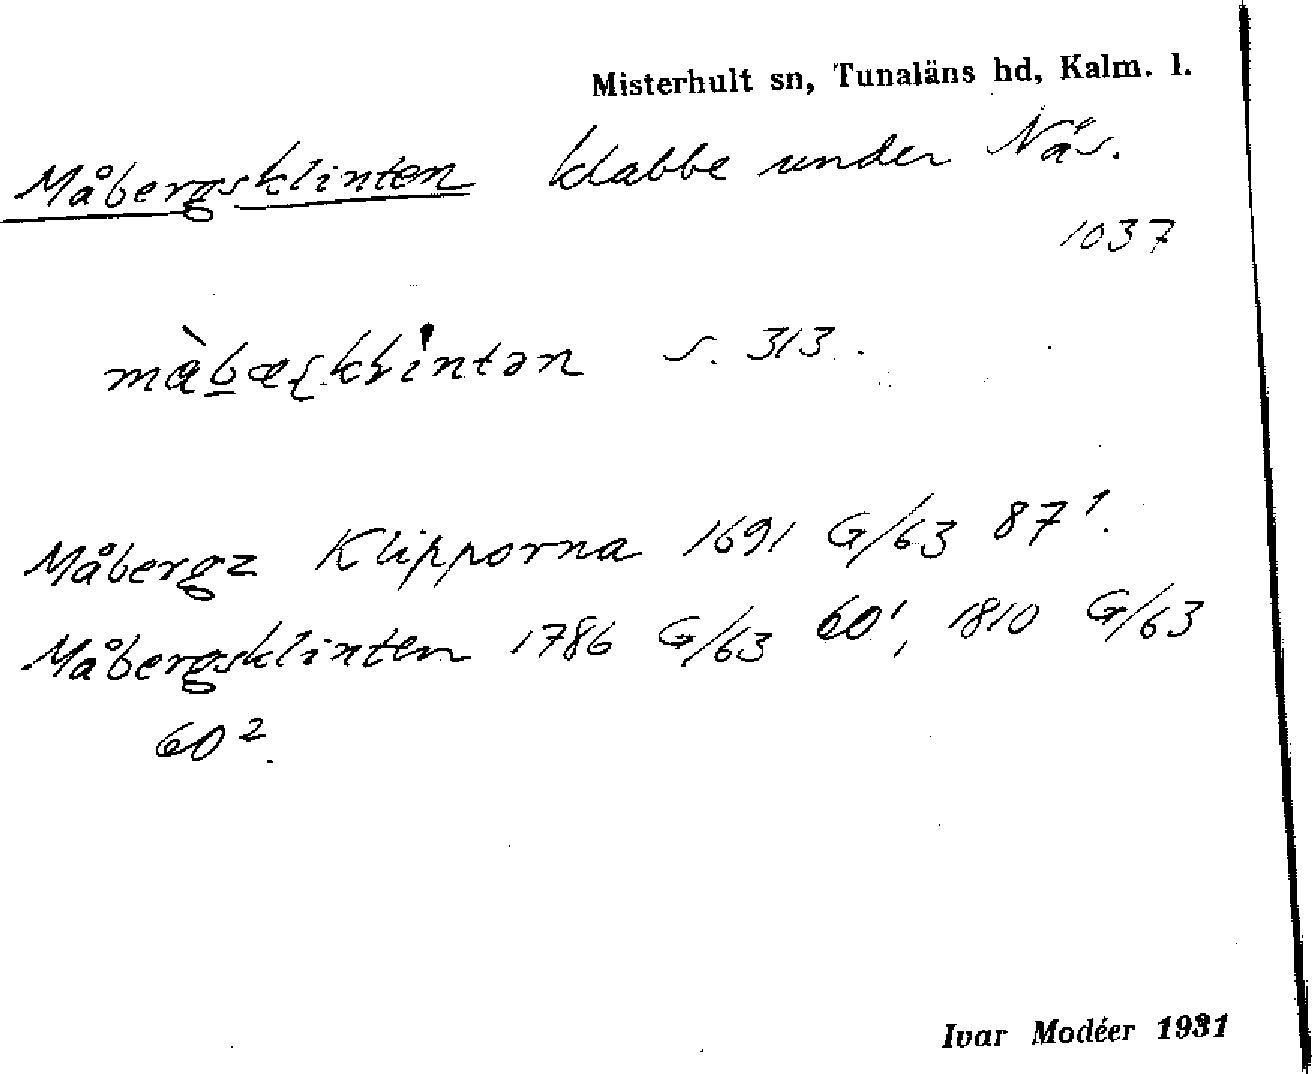 Misterhult sn, Tunaläns hd, Kalm. l.
Måbergsklinten klabbe under Näs.
1037
s. 313.
Måbergz Klipporna 1691 G/63 87¹.
Måbergsklinten 1786 G/63 60¹, 1810 G/63
60².
Ivar Modéer 1931